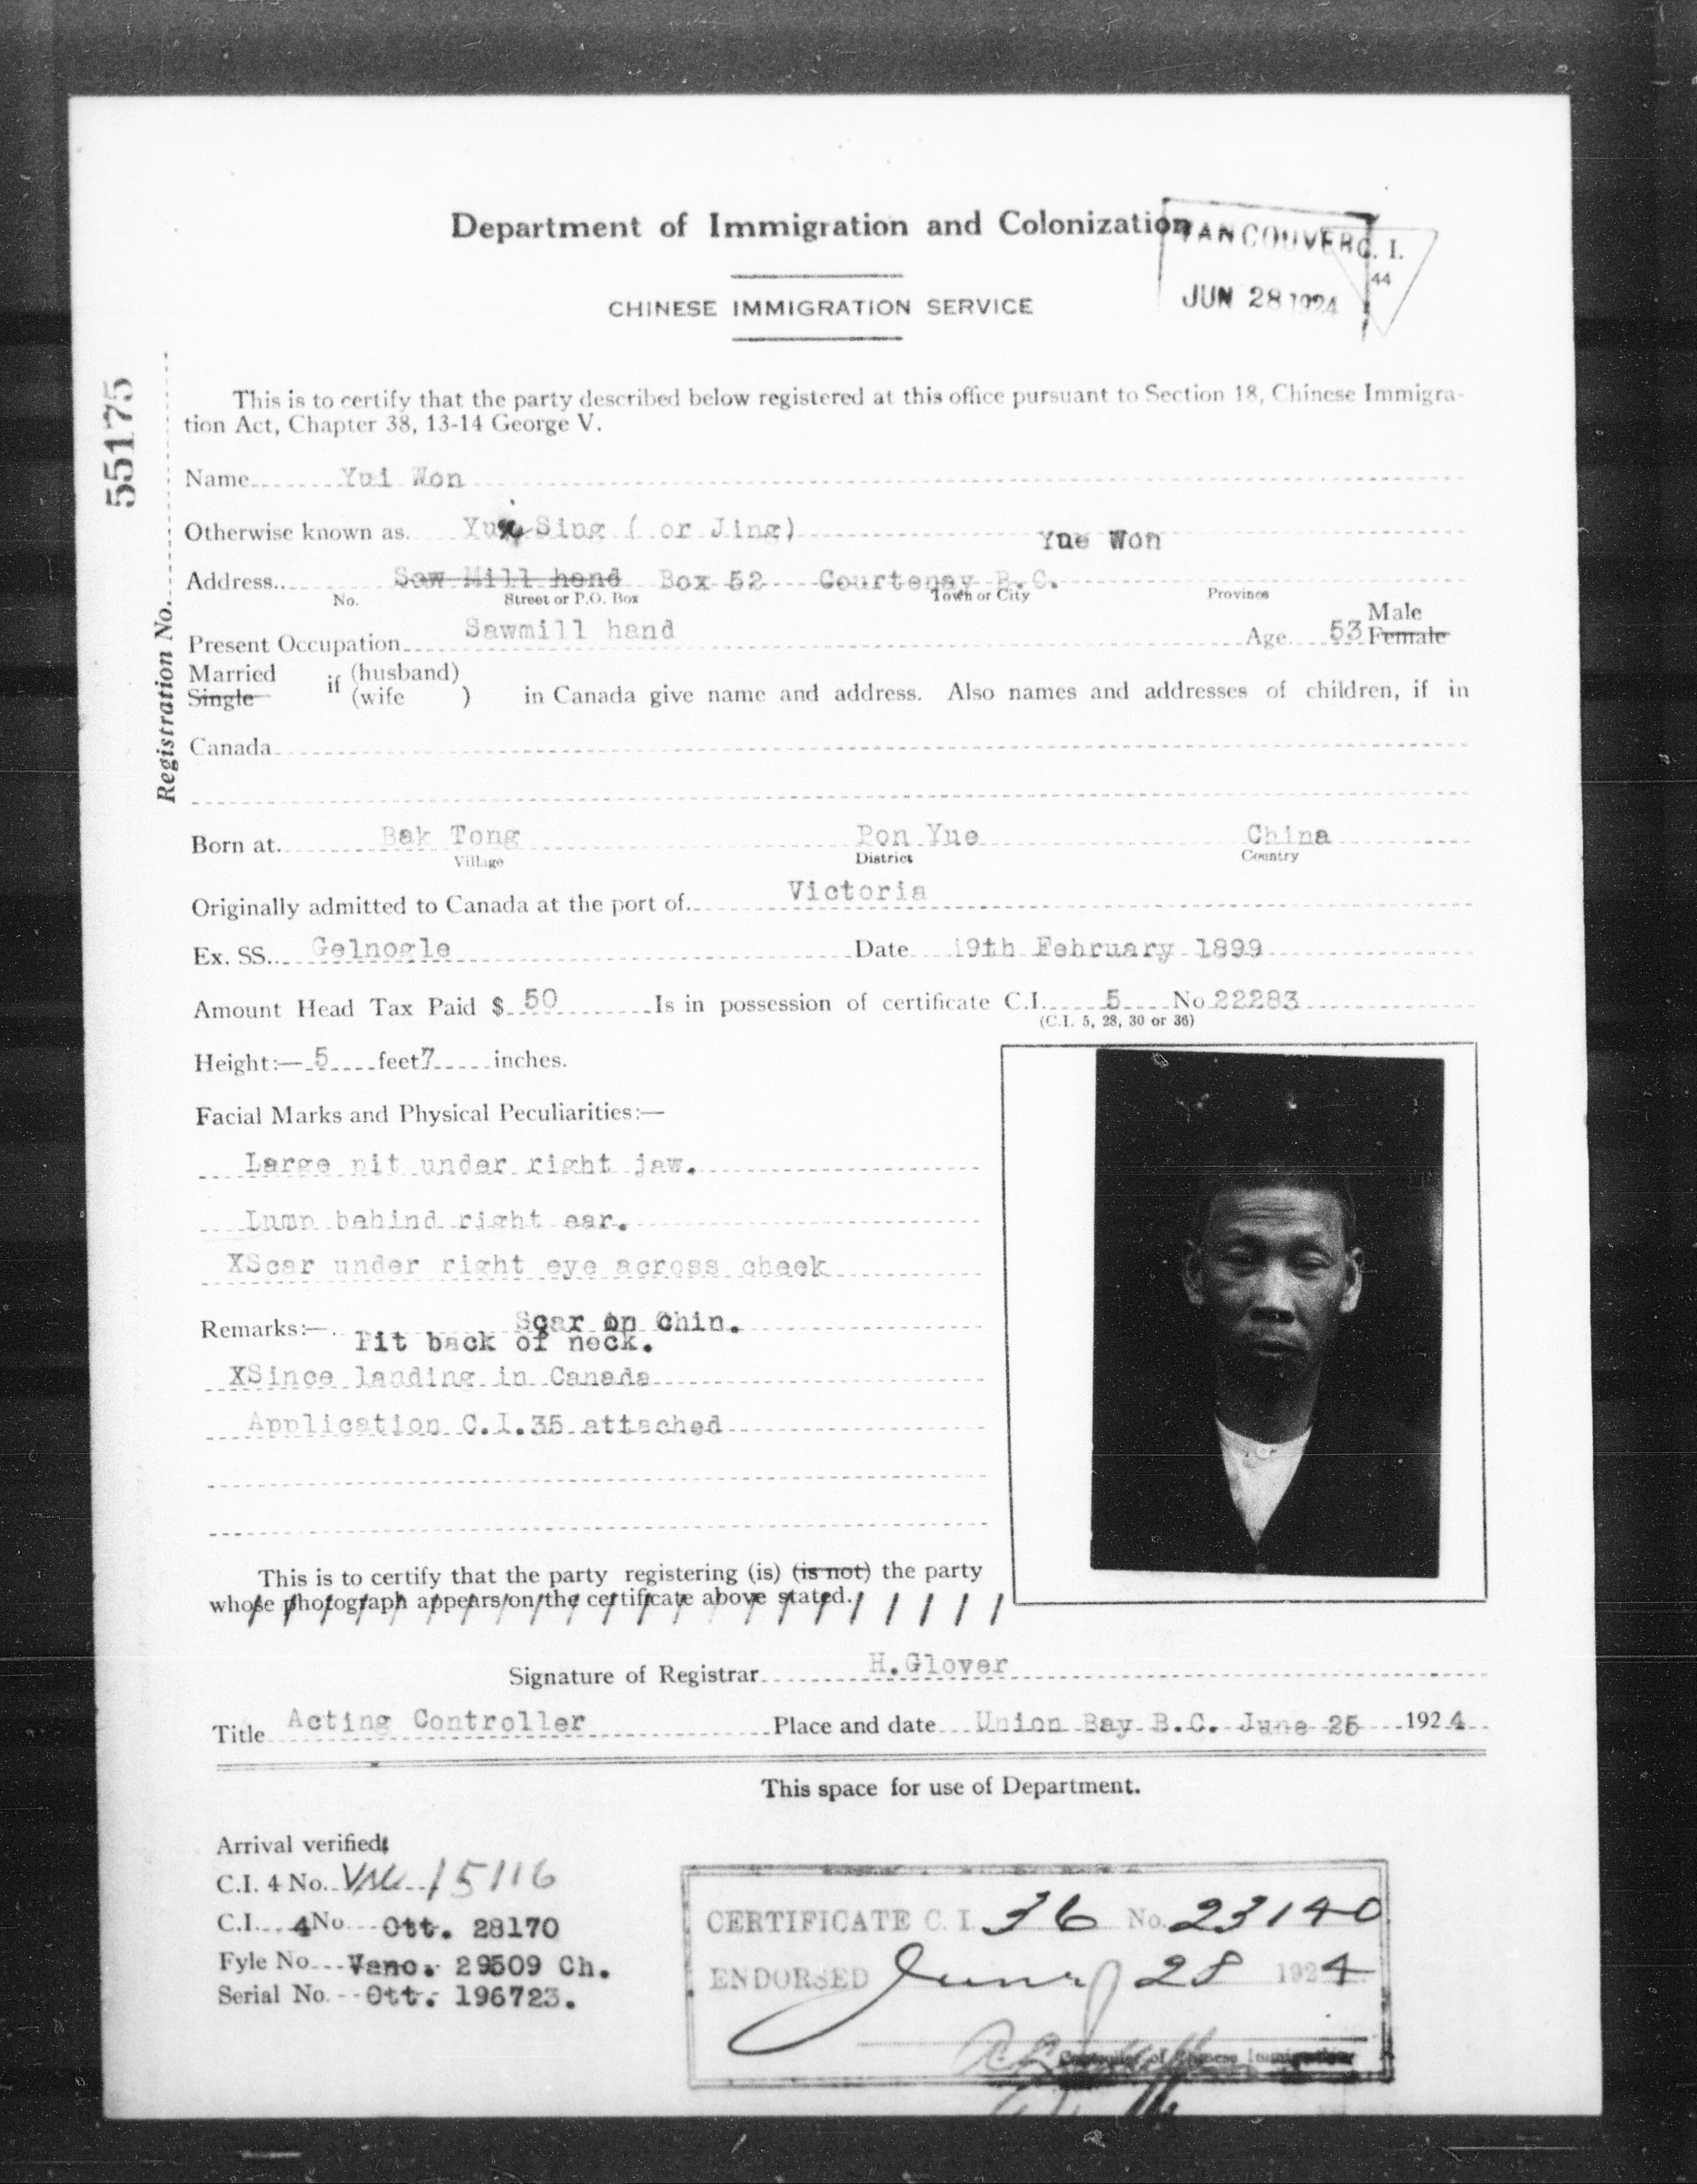 Department of Immigration and Colonization
VANCOUVER
C. I.
44
JUN 28 1924
CHINESE IMMIGRATION SERVICE
55175
Registration No.
This is to certify that the party described below registered at this office pursuant to Section 18, Chinese Immigra-
tion Act, Chapter 38, 13-14 George V.
Name Yui Won
Otherwise known as. Yui Sing ( or Jing) Yue Won
Address Saw Mill hand Box 52 Courtenay B.C.
No. Street or P.O. Box Town or City Province
Male
Present Occupation Sawmill hand Age 53 Female
Married if (husband)
Single (wife ) in Canada give name and address. Also names and addresses of children, if in
Canada
Born at Bak Tong Pon Yue China
Village District Country
Originally admitted to Canada at the port of Victoria
Ex. SS. Gelnogle Date 19th February 1899
Amount Head Tax Paid $ 50 Is in possession of certificate C.I. 5 No 22283
(C.I. 5, 28, 30 or 36)
Height:— 5 feet 7 inches.
Facial Marks and Physical Peculiarities:—
Large pit under right jaw.
Lump behind right ear.
XScar under right eye across cheek
Remarks:— Scar on Chin.
Pit back of neck.
XSince landing in Canada
Application C.I.35 attached
This is to certify that the party registering (is) (is not) the party
whose photograph appears on the certificate above stated.
Signature of Registrar H.Glover
Title Acting Controller Place and date Union Bay B.C. June 25 1924
This space for use of Department.
Arrival verified:
C.I. 4 No. 15116
C.I. 4 No Ott. 28170
Fyle No Vanc. 29509 Ch.
Serial No. Ott. 196723.
CERTIFICATE C. I. 36 No. 23140
ENDORSED June 28 1924
Controller of Chinese Immigration